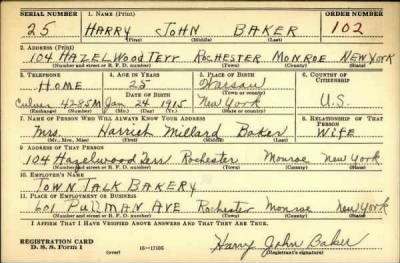 SERIAL NUMBER 1. NAME (Print) ORDER NUMBER
25 HARRY JOHN BAKER 102
(First) (Middle) (Last)
2. ADDRESS (Print)
104 HAZELWOOD TERR ROCHESTER MONROE NEW YORK
(Number and street or R. F. D. number) (Town) (County) (State)
3. TELEPHONE 4. AGE IN YEARS 5. PLACE OF BIRTH 6. COUNTRY OF CITIZENSHIP
HOME 25 Warsaw
DATE OF BIRTH (Town or county)
Culver 4285M Jan 24 1915 New York U.S.
(Exchange) (Number) (Mo.) (Day) (Yr.) (State or country)
7. NAME OF PERSON WHO WILL ALWAYS KNOW YOUR ADDRESS 8. RELATIONSHIP OF THAT PERSON
Mrs. Harriet Millard Baker Wife
(Mr., Mrs., Miss) (First) (Middle) (Last)
9. ADDRESS OF THAT PERSON
104 Hazelwood Terr Rochester Monroe New York
(Number and street or R. F. D. number) (Town) (County) (State)
10. EMPLOYER'S NAME
TOWN TALK BAKERY
11. PLACE OF EMPLOYMENT OR BUSINESS
601 PULLMAN AVE Rochester Monroe New York
(Number and street or R. F. D. number) (Town) (County) (State)
I AFFIRM THAT I HAVE VERIFIED ABOVE ANSWERS AND THAT THEY ARE TRUE.
REGISTRATION CARD
D. S. S. Form 1 (over) 16—17105
Harry John Baker
(Registrant's signature)